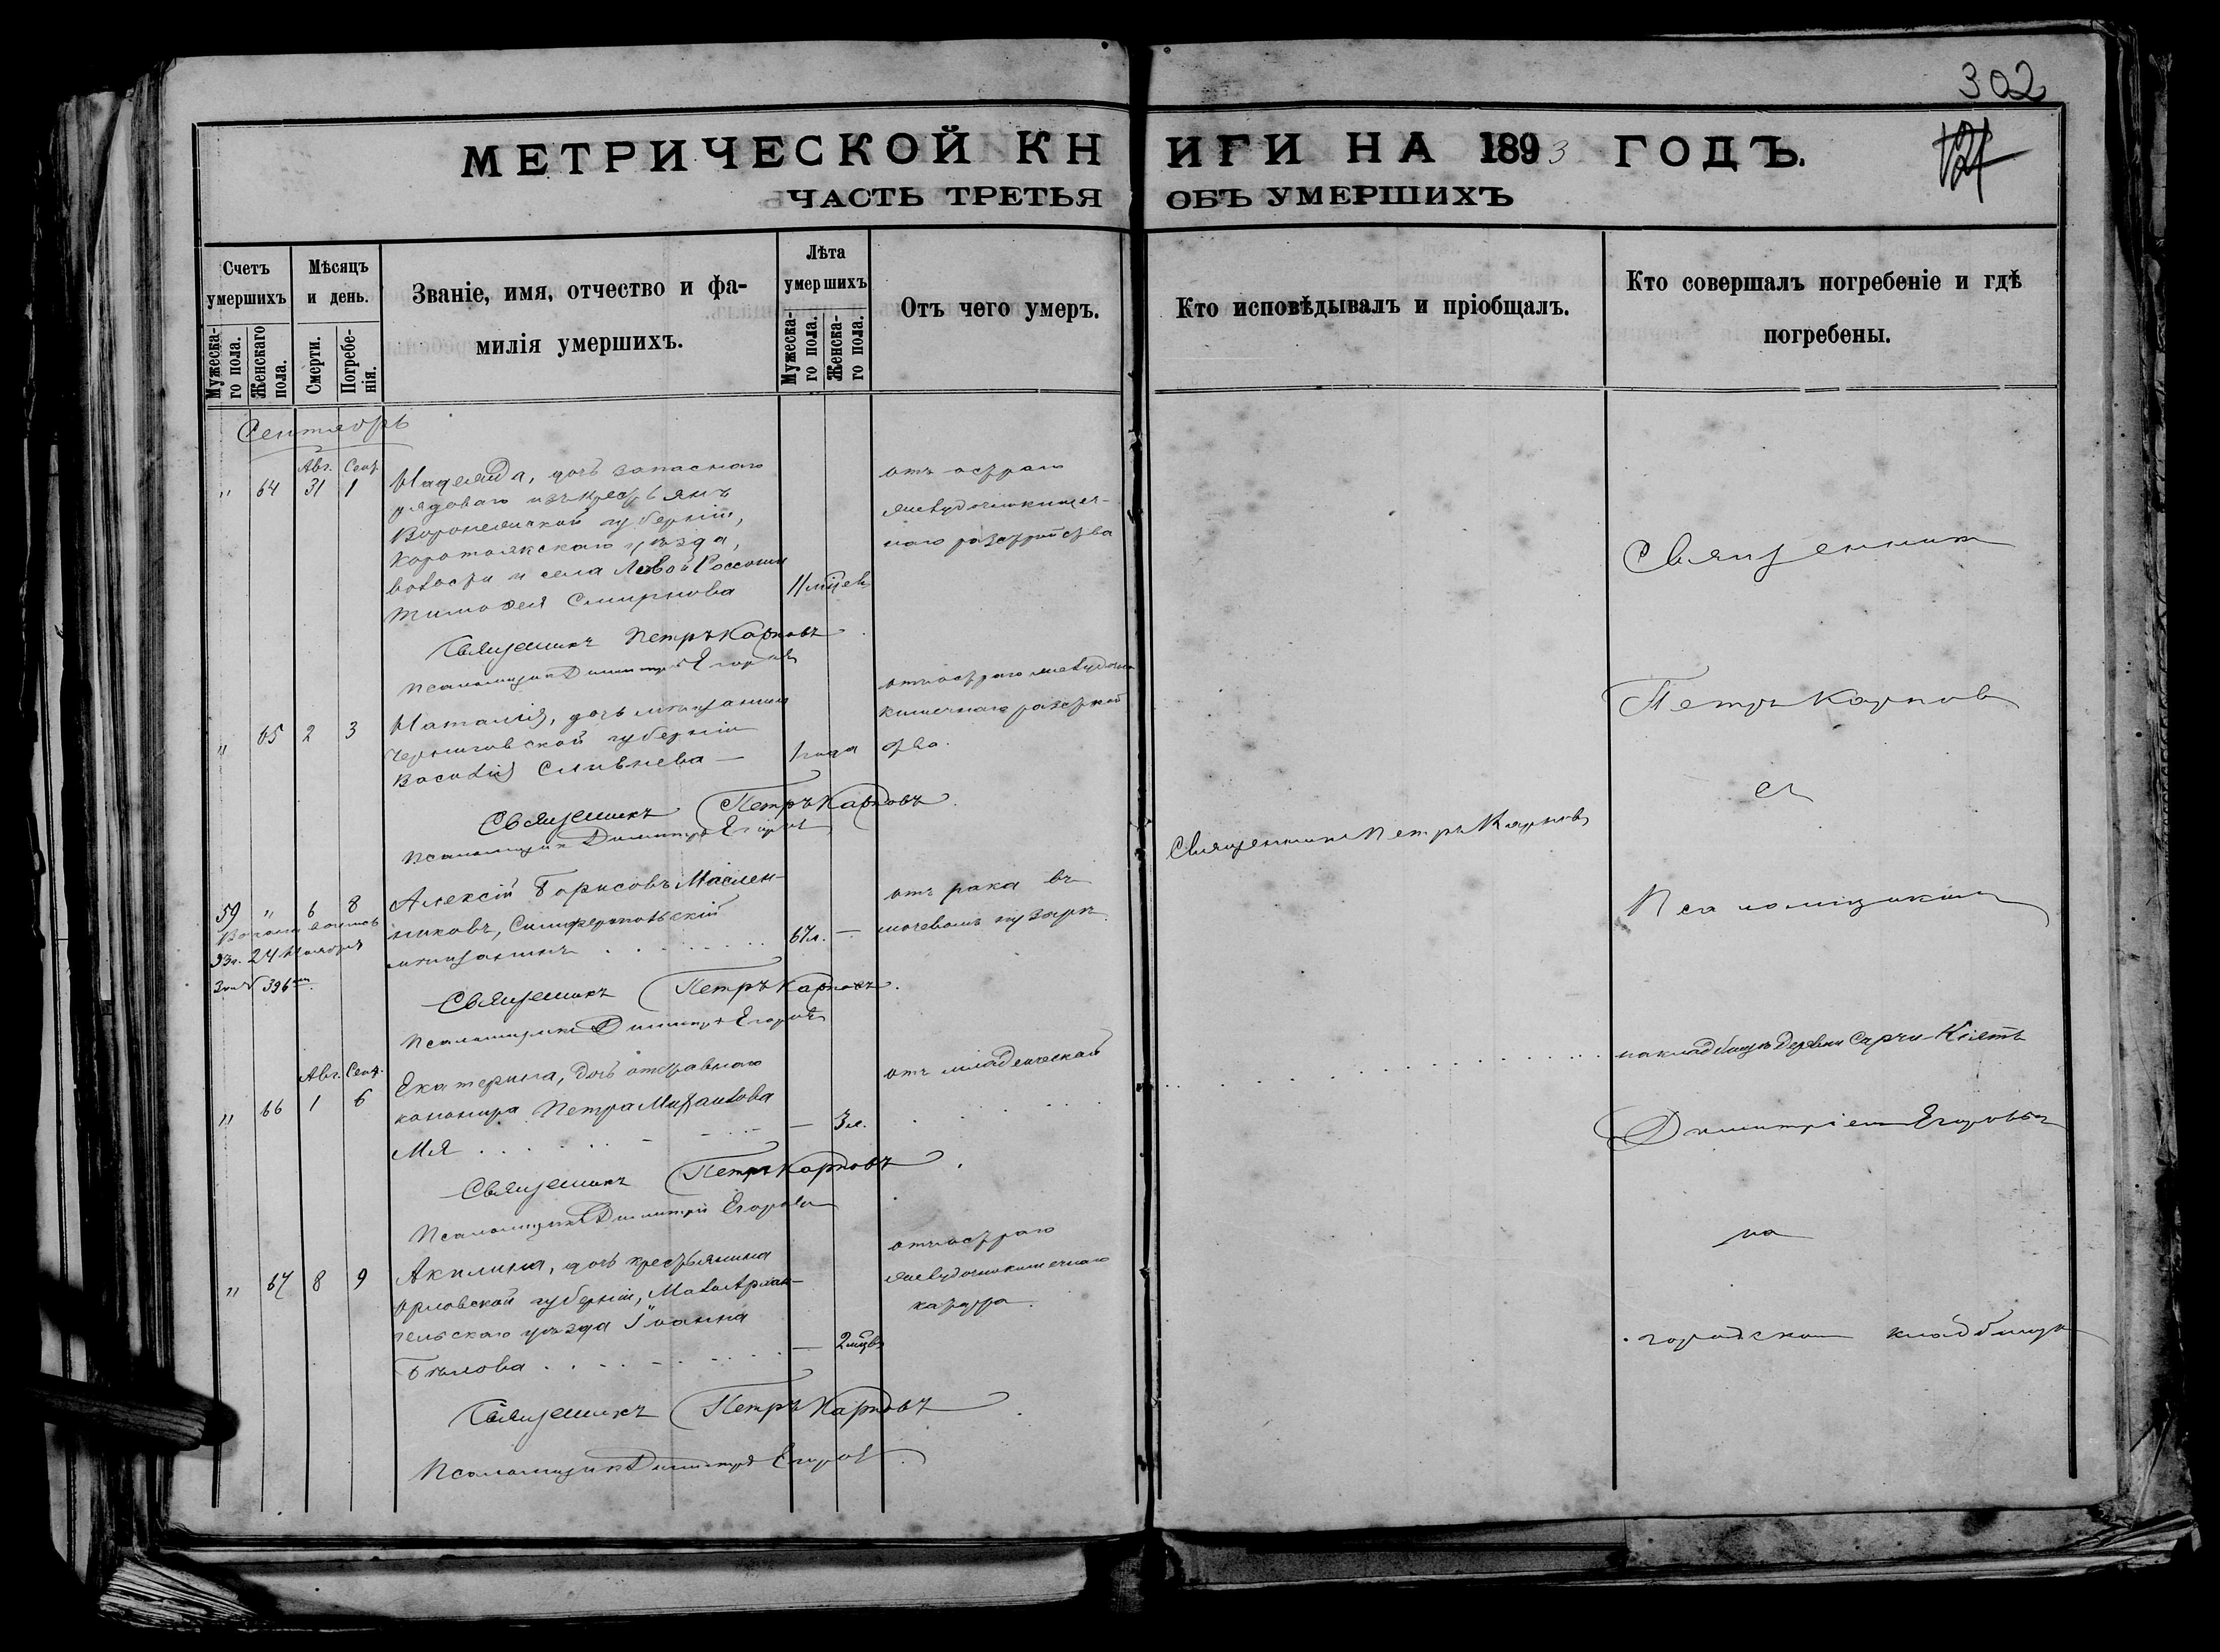 302
МЕТРИЧЕСКОЙ КНИГИ НА 1893 ГОДЪ.
ЧАСТЬ ТРЕТЬЯ ОБЪ УМЕРШИХЪ
Счетъ умершихъ
Мужескаго пола.
Женскаго пола.
Мѣсяцъ и день.
Смерти.
Погребенія.
Званіе, имя, отчество и фамилія умершихъ.
Лѣта умершихъ
Мужескаго пола.
Женскаго пола.
Отъ чего умеръ.
Кто исповѣдывалъ и пріобщалъ.
Кто совершалъ погребеніе и гдѣ погребены.
Сентябрь
Авг. Сент.
" 64 31 1
Надежда, дочь запаснаго
рядоваго изъ крестьянъ
Воронежской губерніи,
Коротоякскаго уѣзда,
волости и села Новой
Тимоѳея Смирнова
11 мѣсяцев
отъ остраго
желудочнокишеч-
наго разстройства
Священникъ Петръ Карповъ
Псаломщикъ Димитрій Егоровъ
" 65 2 3
Наталія, дочь мѣщанина
Черниговской губерніи
Василія
1 года
отъ остраго желудочно
кишечнаго разстрой
ства.
Священникъ Петръ Карповъ
Псаломщикъ Димитрій Егоровъ
59 " 6 8
24 Ноября
396
Алексій Борисовъ Маслен-
никовъ, Симферопольскій
мѣщанинъ
67 л. —
отъ рака въ
мочевомъ пузырѣ
Священникъ Петръ Карповъ
Священникъ Петръ Карповъ
Псаломщикъ Димитрій Егоровъ
Авг. Сент.
" 66 1 6
Екатерина, дочь отставнаго
канонира Петра Михаилова
— 3 м.
отъ младенческой
на кладбищѣ деревни Сарчи-Кіятъ
Священникъ Петръ Карповъ
Псаломщикъ Димитрій Егоровъ
" 67 8 9
Акилина, дочь крестьянина
Орловской губерніи, Малоархан-
гельскаго уѣзда Іоанна
Бѣлова
— 2 мѣсяцевъ
отъ остраго
желудочнокишечнаго
катарра.
Священникъ Петръ Карповъ
Псаломщикъ Димитрій Егоровъ
Священникъ
Петръ Карповъ
съ
Псаломщикомъ
Димитріемъ Егоровымъ
на
городскомъ кладбищѣ